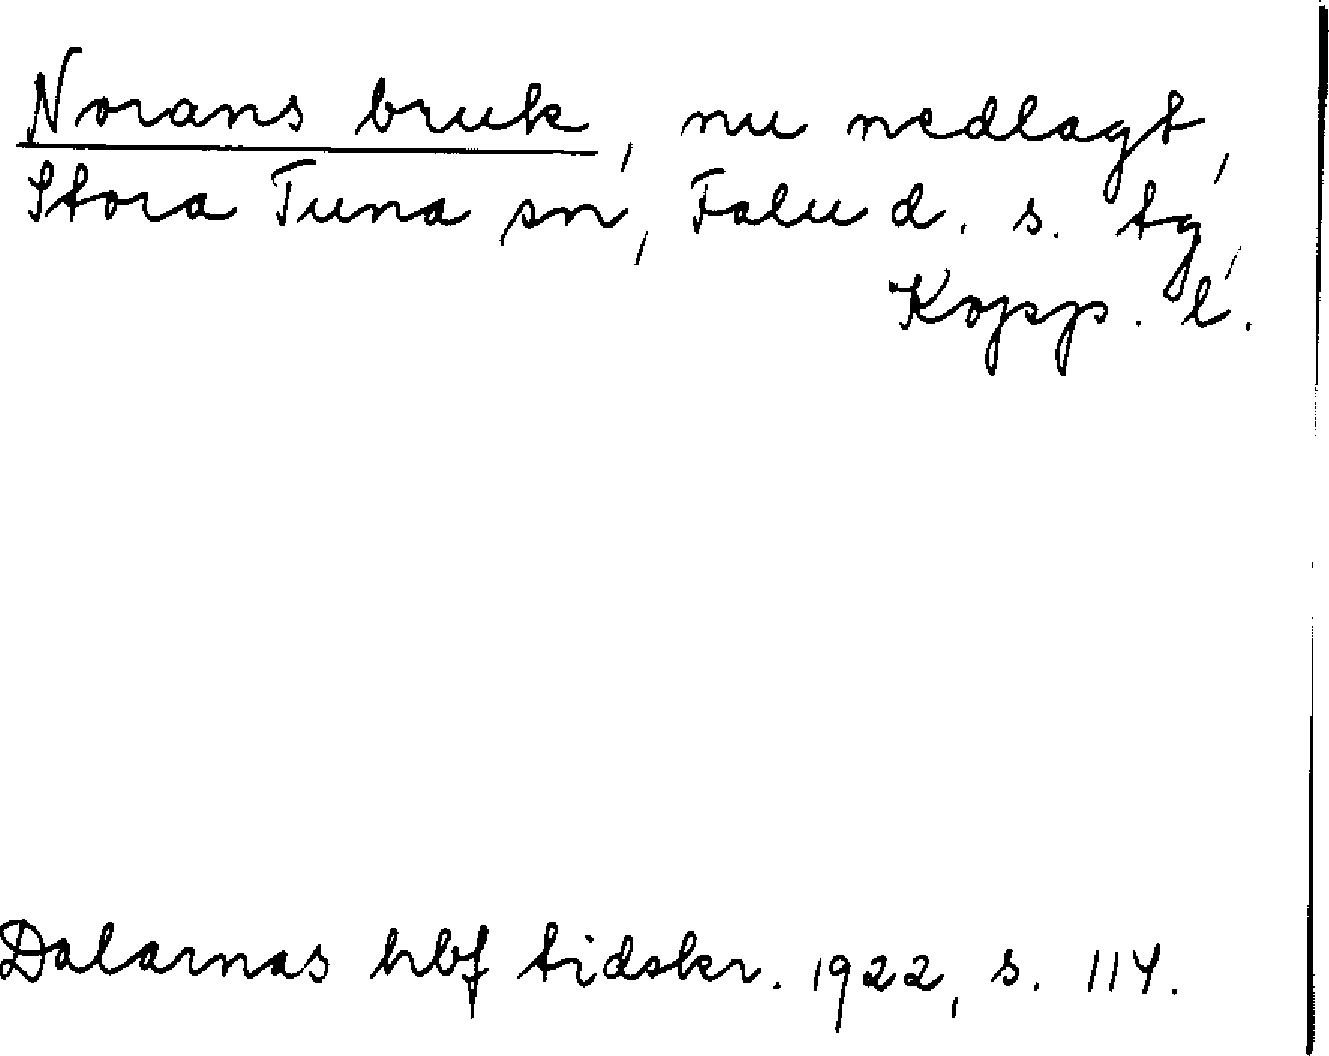 Norans bruk, nu nedlagt,
Stora Tuna sn, Falu d. s. tg,
Kopp. l.
Dalarnas hbf tidskr. 1922, s. 114.